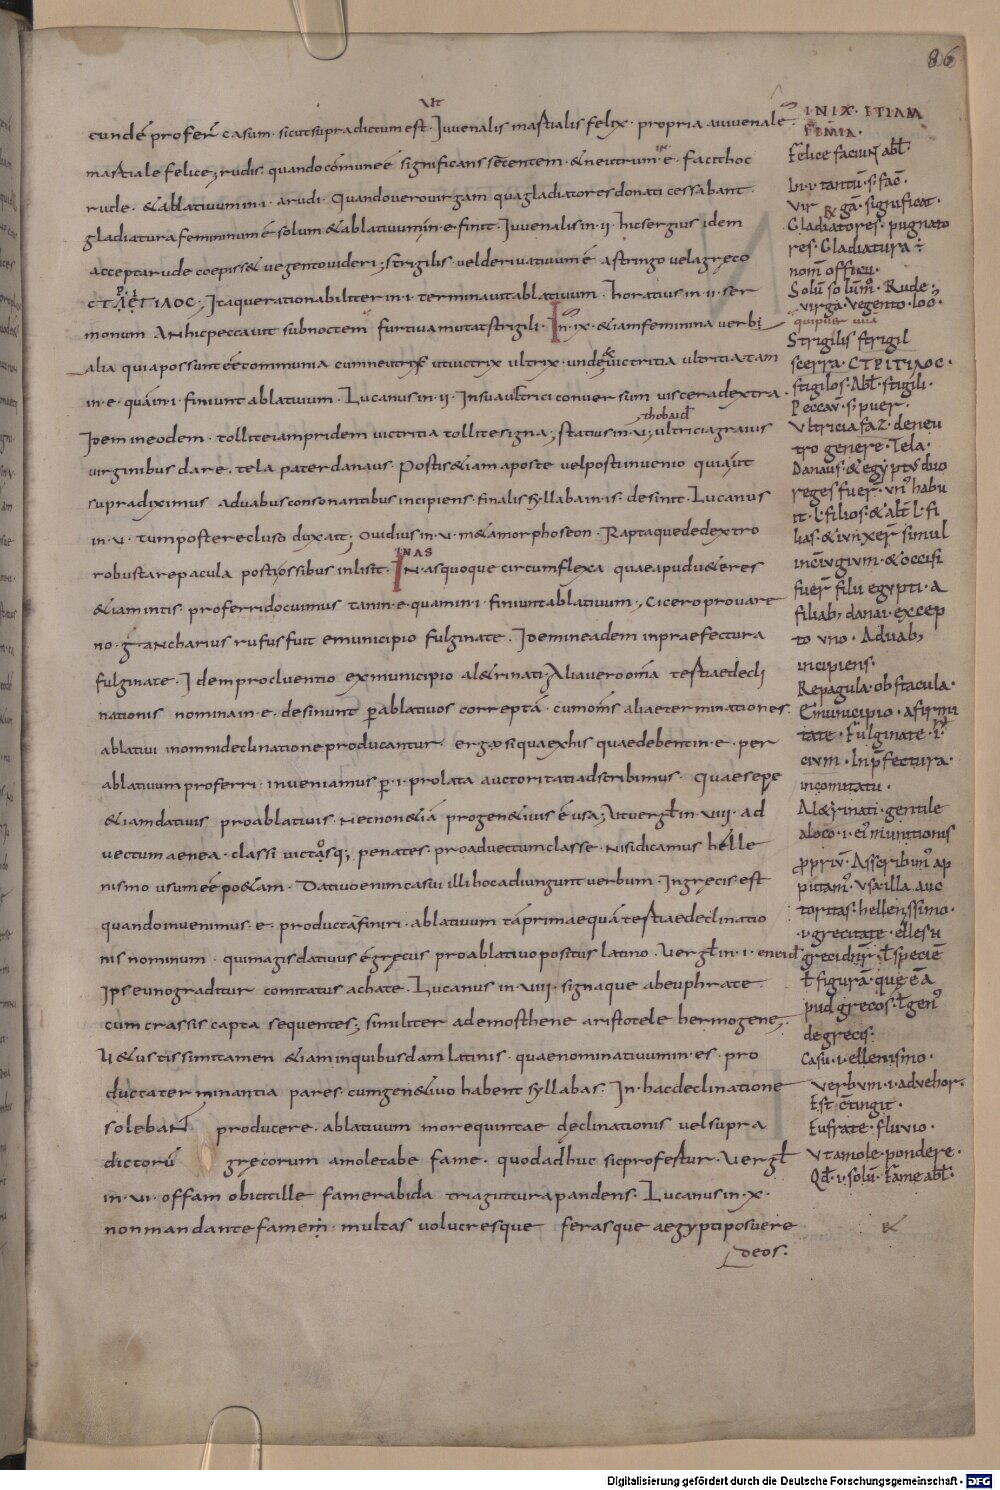 86
ut
cundē profer̄ casum · sicut supra dictum est · Iuuenalis martialis felix · propria aiuuenale
martiale felice; rudis · quando cōmune ē significans rēcentem · & neutrum ē · facit hoc
rude · & ablatiuum in · i · a rudi · Quando uero uirgam qua gladiatores donati cessabant
gladiatura femininum ē solum & ablatiuum in · e · finit · Iuuenalis in · ii · hic sergius idem
accepta rude coepiss& uegento uideri; strigilis · uel deriuatiuum ē a stringo uel a greco
Itaque rationabiliter in · i · terminauit ablatiuum · horatius in · ii · ser
monum An hic peccauit sub noctem furtiua mutat strigili · In · ix · & iam feminina uerbi
alia quia possunt eē communia cum neutris ut uictrix ultrix · unde uictritia ultritia tam
in · e · quā in · i · finiunt ablatiuum · Lucanus in · ii · In sua uictrici conuersum uiscera dextra ·
thebaid
Idem in eodem · tollite iampridem uictritia tollite signa; statius in · u; ultricia graius
uirginibus dare · tela pater danaus · Postis & iam a poste uel posti inuenio quia ut
supra diximus a duabus consonantibus incipiens finalis syllaba in · is · desinit · Lucanus
in · u · tum poste recluso dux ait; Ouidius in · u · m&amorphoseon · Raptaque de dextro
robusta repacula posti ossibus inlisit · IN · as quoque circumflexa quae apud u&eres
INAS
& iam in tis · proferri docuimus tam in · e · quam in · i · finiunt ablatiuum; Cicero pro uare
no · g̅ ancharius rufus fuit e municipio fulginate · Idem in eadem in praefectura
fulginate · Idem pro cluentio ex municipio al&rinati; Alia uero om̄ia tertiae decli
nationis nomina in · e · desinunt p̱ ablatiuos correptā · cum om̄s aliae terminationes ·
ablatiui in omni declinatione producantur ergo si qua ex his quae debent in · e · per
ablatiuum proferri · inueniamus p̱ · i · prolata auctoritati adscribimus · quae sepe
& iam datiuis pro ablatiuis · nec non & iā pro gen&iuis ē usa; Ut uergł in · uiii · ad
uectum aenea · classi uictosq; penates · pro aduectum classe · Nisi dicamus helle
nismo usum eē po&am · Datiuo enim casui illi hoc adiungunt uerbum · In grecis est
quando inuenimus · e · productā finiri · ablatiuum tā primae quā tertiae declinatio
nis nominum · qui magis datiuus ē grecus pro ablatiuo positus latino · Uergł in · i · eneid
ipse uno graditur comitatus achate · Lucanus in · uiii · signaque ab euphrate
cum crassis capta sequentes; similiter a demosthene aristotele hermogene;
U&ustissimi tamen & iam in quibusdam latinis · quae nominatiuum in · es · pro
ducta terminantia pares cum gen&iuo habent syllabas · In hac declinatione
solebant producere · ablatiuum more quintae declinationis uel supra
dictorū grecorum a mole tabe fame · quod adhuc sic profertur · Uergł
in · ui · offam obicit ille fame rabida tria guttura pandens · Lucanus in · x ·
non mandante famem · multas uolucresque ferasque aegypti posuere
deos ·
INIX · ITIAM
FEMIA ·
Felice faciuñ abł
In · i · tantū · s · fac̄ ·
Vir gā · significat ·
Gladiatores · pugnato
res · Gladiatura ·
nom̄ officii ·
Solū solūm̄ · Rude ·
uirga · uegento · loc̄ ·
Strigilis strigil
scerra · CTPITIΛOC ·
stigilos · Abł · stigili ·
Peccau · s · puer ·
Vltricia faz · deneu
tro genere · Tela ·
Danaus · & egyptus duo
reges fuer̄ · un habu
it · l · filios · & alt̄ · l · fi
lias · & iunxer̄ simul
in cōiugium · & occisi
fuer̄ filii egypti · a
filiab; danai · excep
to uno · A duab;
incipiens ·
Repagula · obstacula ·
E municipio · a firmi
tate · Fulginate · i
cium · In p̄fectura ·
in comitatu ·
Al&rinati · gentile
a loco · i · ei munitionis
propriū · Asscribim̄ ap
pittam̄ · Vsa illa auc
toritas · hellenissimo ·
· i · grecitate · elles ñ
greci dnr̄ · ł speciē
ł figurā · que ē a
pud grecos · ł gen
de grecis ·
Casu · i · ellenismo ·
uerbum · i · aduehor ·
Est c̄tingit ·
Eufrate · fluuio ·
Vt a mole · pondere ·
Qd̄ · i · solū · Fame abł ·
&
Digitalisierung gefördert durch die Deutsche Forschungsgemeinschaft - DFG